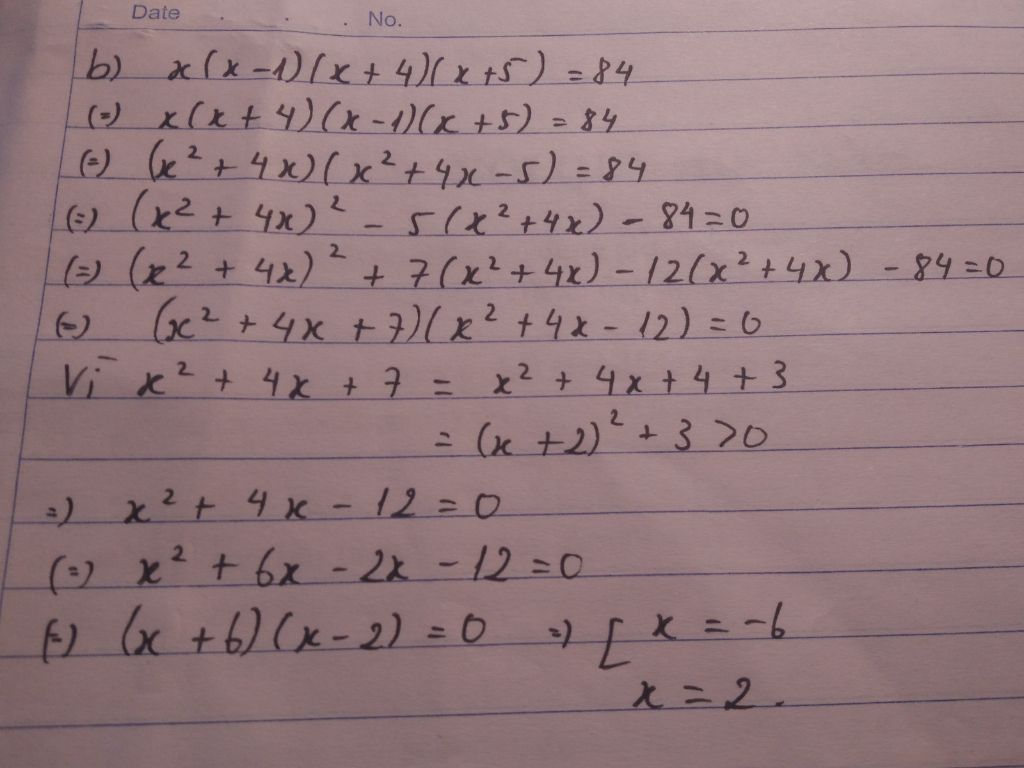 Date . . . No.
b) x(x-1)(x+4)(x+5) = 84
(=) x(x+4)(x-1)(x+5) = 84
(=) (x² + 4x)(x² + 4x - 5) = 84
(=) (x² + 4x)² - 5(x² + 4x) - 84 = 0
(=) (x² + 4x)² + 7(x² + 4x) - 12(x² + 4x) - 84 = 0
(=) (x² + 4x + 7)(x² + 4x - 12) = 0
Vì x² + 4x + 7 = x² + 4x + 4 + 3
= (x + 2)² + 3 > 0
=) x² + 4x - 12 = 0
(=) x² + 6x - 2x - 12 = 0
(=) (x + 6)(x - 2) = 0 =) [ x = -6
x = 2.